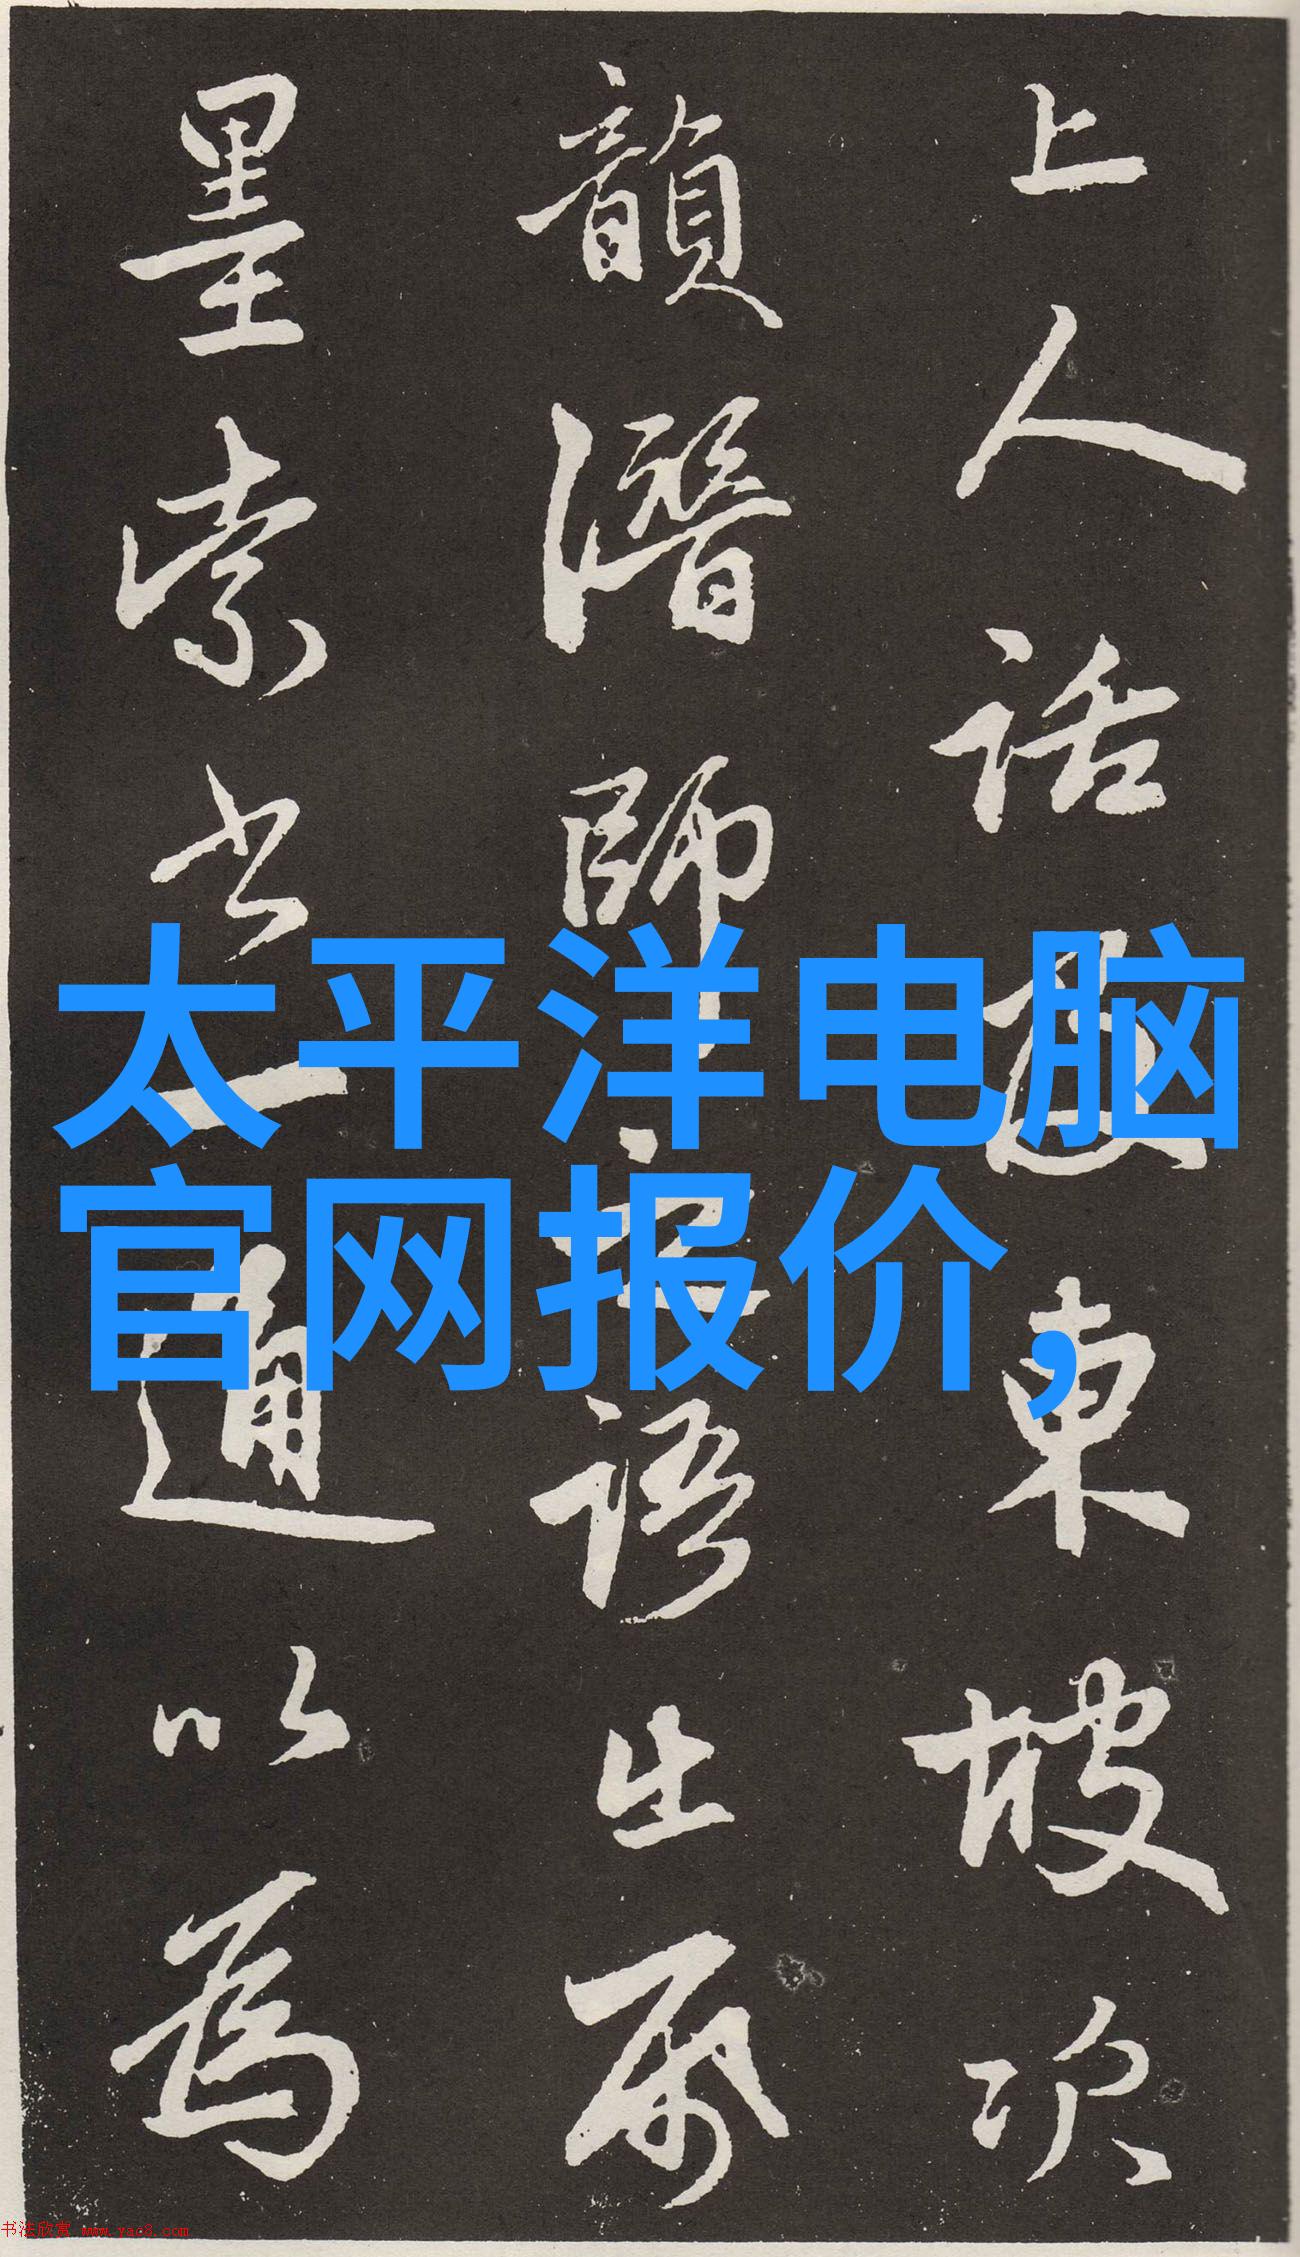 上人話遊東坡次
韻潛師
語生
墨索書一通以為
太平洋电脑
官网报价,
书法欣赏 www.yac8.com